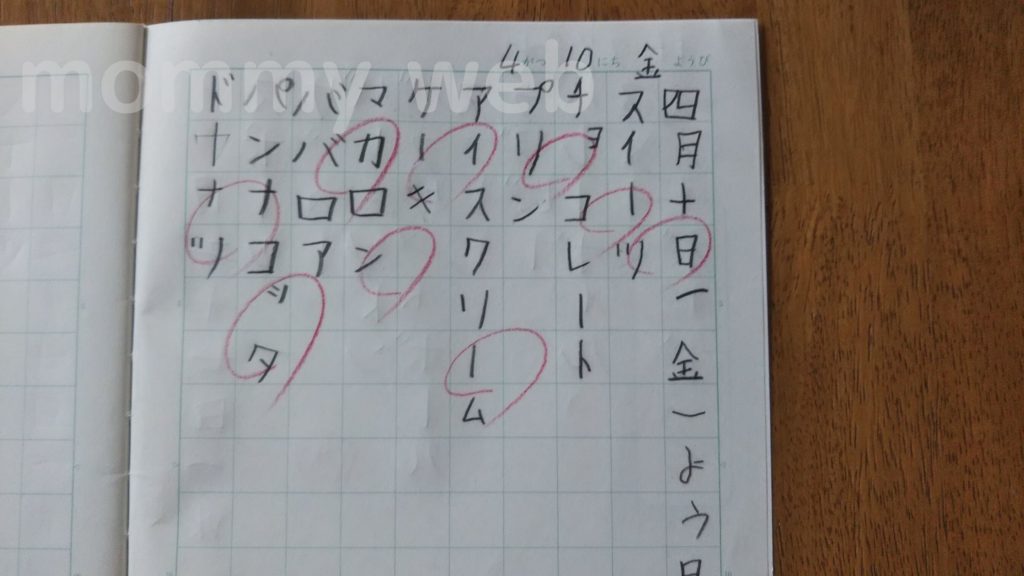 mommy web
4がつ10にち 金ようび
四月十日(金)よう日
スイーツ
チョコレート
プリン
アイスクリーム
ケーキ
マカロン
ババロア
パンナコッタ
ドーナツ